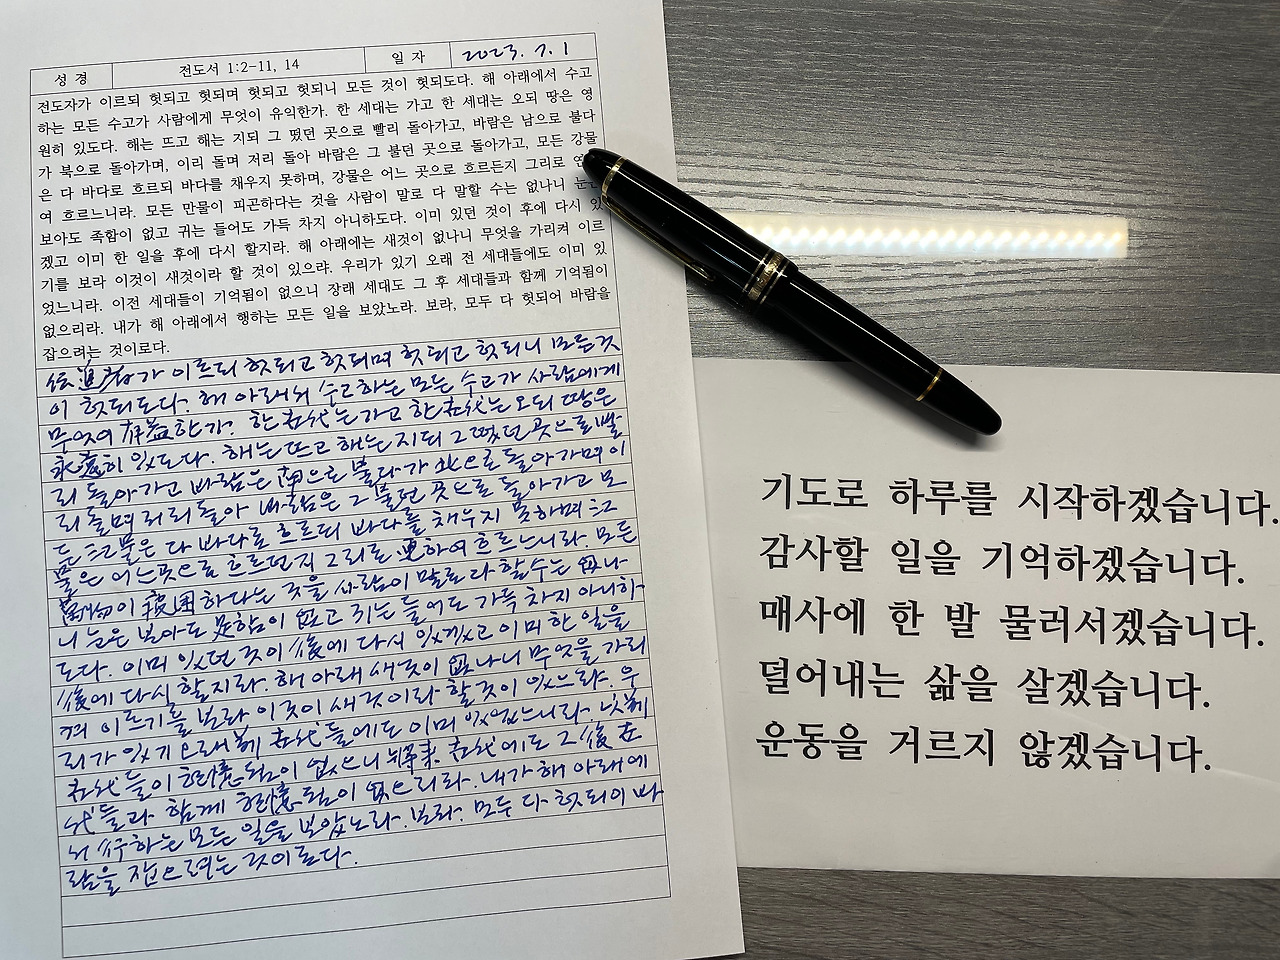 성 경 전도서 1:2-11, 14 일 자 2023. 7. 1
전도자가 이르되 헛되고 헛되며 헛되고 헛되니 모든 것이 헛되도다. 해 아래에서 수고
하는 모든 수고가 사람에게 무엇이 유익한가. 한 세대는 가고 한 세대는 오되 땅은 영
원히 있도다. 해는 뜨고 해는 지되 그 떴던 곳으로 빨리 돌아가고, 바람은 남으로 불다
가 북으로 돌아가며, 이리 돌며 저리 돌아 바람은 그 불던 곳으로 돌아가고, 모든 강물
은 다 바다로 흐르되 바다를 채우지 못하며, 강물은 어느 곳으로 흐르든지 그리로
여 흐르느니라. 모든 만물이 피곤하다는 것을 사람이 말로 다 말할 수는 없나니
보아도 족함이 없고 귀는 들어도 가득 차지 아니하도다. 이미 있던 것이 후에 다시 있
겠고 이미 한 일을 후에 다시 할지라. 해 아래에는 새것이 없나니 무엇을 가리켜 이르
기를 보라 이것이 새것이라 할 것이 있으랴. 우리가 있기 오래 전 세대들에도 이미 있
었느니라. 이전 세대들이 기억됨이 없으니 장래 세대도 그 후 세대들과 함께 기억됨이
없으리라. 내가 해 아래에서 행하는 모든 일을 보았노라. 보라, 모두 다 헛되어 바람을
잡으려는 것이로다.
가 이르되 헛되고 헛되며 헛되고 헛되니 모든것
이 헛되도다. 해 아래서 수고하는 모든 수고가 사람에게
무엇이 有益한가. 한 世代는 가고 한 世代는 오되 땅은
永遠히 있도다. 해는 뜨고 해는 지되 그 떴던 곳으로 빨
리 돌아가고 바람은 南으로 불다가 北으로 돌아가며 이
리 돌며 저리 돌아 바람은 그 불던 곳으로 돌아가고 모
든 江물은 다 바다로 흐르되 바다를 채우지 못하며 江
물은 어느곳으로 흐르던지 그리로 連하여 흐르느니라. 모든
萬物이 疲困하다는 것을 사람이 말로 다 할수는 없나
니 눈은 보아도 足함이 없고 귀는 들어도 가득 차지 아니하
도다. 이미 있던 것이 後에 다시 있겠고 이미 한 일을
後에 다시 할지라. 해 아래 새것이 없나니 무엇을 가리
켜 이르기를 보라 이것이 새것이라 할것이 있으랴. 우
리가 있기 오래 世代들에도 이미 있었느니라.
世代들이 記憶됨이 없으니 將來 世代에도 그 後 世
代들과 함께 記憶됨이 없으리라. 내가 해 아래에
서 行하는 모든 일을 보았노라. 보라. 모두 다 헛되어 바
람을 잡으려는 것이로다.
기도로 하루를 시작하겠습니다.
감사할 일을 기억하겠습니다.
매사에 한 발 물러서겠습니다.
덜어내는 삶을 살겠습니다.
운동을 거르지 않겠습니다.